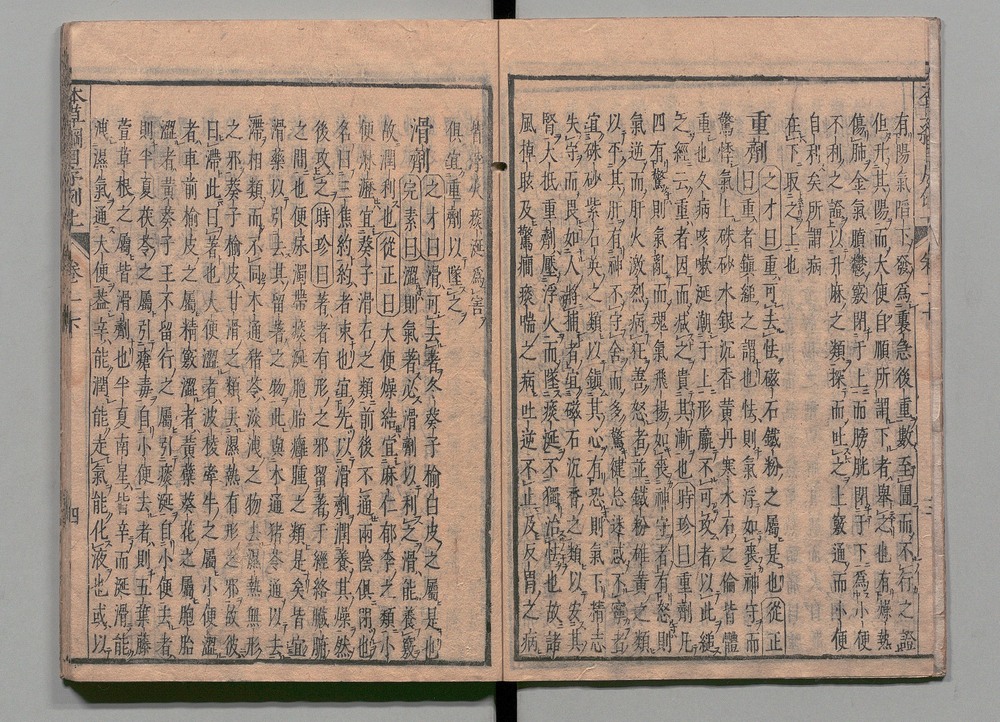 有陽氣陷下發爲裏急後重數至圊而不行之證
但升其陽而大便自順所謂下者舉之也有燥熱
傷肺金氣膹鬱竅閉于上而膀胱閉于下爲小便
不利之證以升麻之類探而吐之上竅通而小便
自利矣所謂病
在下取之上也
重劑 之才曰重可去怯磁石鐵粉之屬是也從正
曰重者鎮縋之謂也怯則氣浮如喪神守而
驚悸氣上硃砂水銀沉香黃丹寒水石之倫皆體
重也久病咳嗽涎潮于上形羸不可攻者以此縋
之經云重者因而減之貴其漸也時珍曰重劑凡
四有驚則氣亂而魂氣飛揚如喪神守者有怒則
氣逆而肝火激烈病狂善怒者並鐵粉雄黃之類
以平其肝有神不守舍而多驚健忘迷惑不寧者
宜硃砂紫石英之類以鎮其心有恐則氣下精志
失守而畏如人將捕者宜磁石沉香之類以安其
腎大抵重劑壓浮火而墜痰涎不獨治怯也故諸
風掉眩及驚癇痰喘之病吐逆不止及反胃之病
本草綱目序例上 卷一下 四
皆浮火痰涎爲害
俱宜重劑以墜之
滑劑 之才曰滑可去著冬葵子榆白皮之屬是也
完素曰澀則氣著必滑劑以利之滑能養竅
故潤利也從正曰大便燥結宜麻仁郁李之類小
便淋瀝宜葵子滑石之類前後不通兩陰俱閉也
名曰三焦約約者束也宜先以滑劑潤養其燥然
後攻之時珍曰著者有形之邪留著于經絡臟腑
之間也便尿濁帶痰涎胞胎癰腫之類是矣皆宜
滑藥以引去其留著之物此與木通猪苓通以去
滯相類而不同木通猪苓淡洩之物去濕熱無形
之邪葵子榆皮甘滑之類去濕熱有形之邪故彼
曰滯此曰著也大便澀者波稜牽牛之屬小便澀
者車前榆皮之屬精竅澀者黃蘗葵花之屬胞胎
澀者黃葵子王不留行之屬引痰涎自小便去者
則半夏茯苓之屬引瘡毒自小便去者則五葉藤
萱草根之屬皆滑劑也半夏南星皆辛而涎滑能
洩濕氣通大便蓋辛能潤能走氣能化液也或以